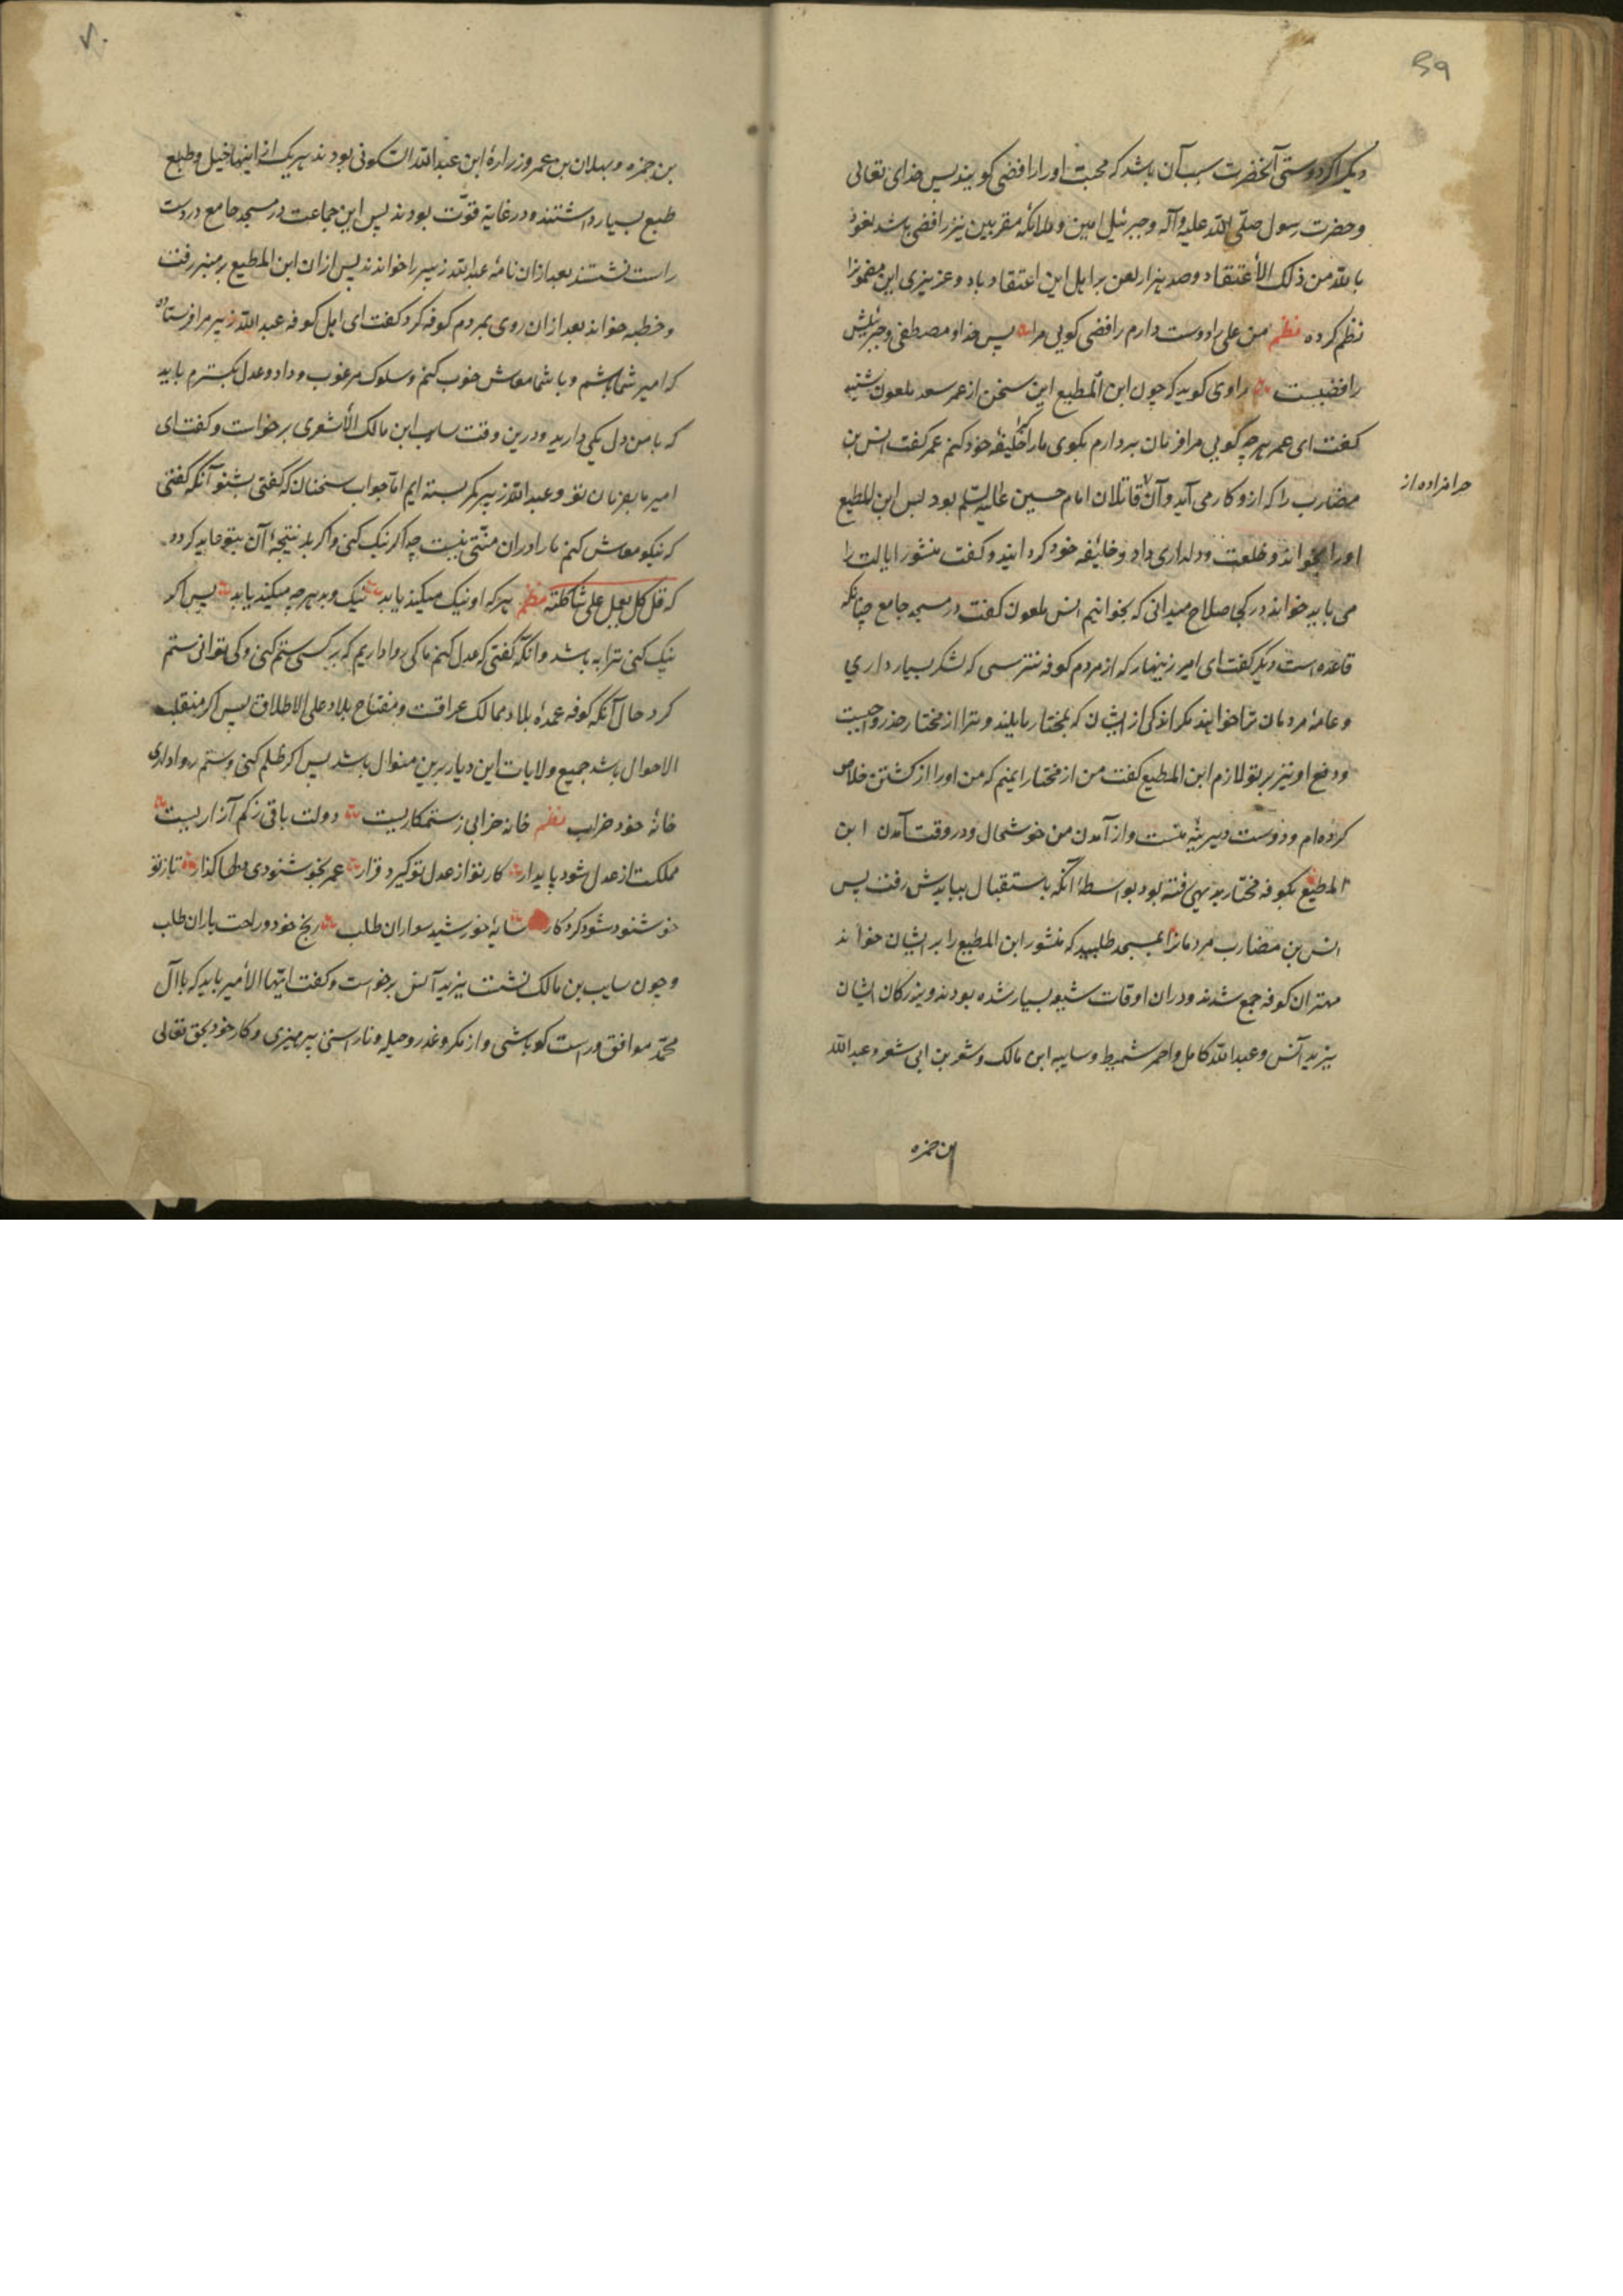 ۵۹
دیکر اکر دوستی آنحضرت سبب آن باشد که محبت او را رافضی کویند پس خدای تعالی
و حضرت رسول صلّی الله علیه و آله و جبرئیل امین و ملائکه مقربین نیز رافضی باشد نعوذ
بالله من ذلک الأعتقاد و صد هزار لعن بر اهل این اعتقاد باد و عزیزی این مضمونرا
نظم کرده نظم من علی را دوست دارم رافضی کویی مرا پس خدا و مصطفی و جبرئیلش
رافضیست راوی کوید که چون ابن المطیع این سخن از عمر سعد ملعون شنید
کفت ای عمر هر چه کویی مرا فرمان بردارم بکوی ما را خلیفهٔ خود کنم عمر کفت انس بن
مضارب را که ازو کار می آید و آن قاتلان امام حسین علیه السلم بود پس ابن المطیع
حرامزاده از
او را بخواند و خلعت و دلداری داد و خلیفه خود کردانید و کفت منشور ایالت را
می باید خواند در کجا صلاح میدانی که بخوانیم انس ملعون کفت در مسجد جامع چنانکه
قاعده است دیکر کفت ای امیر زینهار که از مردم کوفه نترسی که لشکر بسیار داری
و عامهٔ مردمان ترا خواهند مکر اندکی از ایشان که بمختار مایلند و ترا از مختار حذر واجبست
و دفع او نیز بر تو لازم ابن المطیع کفت من از مختار ایمنم که من او را از کشتن خلاص
کرده‌ام و دوست دیرینهٔ منست و از آمدن من خوشحال و در وقت آمدن ابن
المطیع بکوفه مختار بدیهی رفته بود بواسطهٔ آنکه باستقبال بیایدش رفت پس
انس بن مضارب مردمانرا بمسجد طلبید که منشور ابن المطیع را بر ایشان خواند
مهتران کوفه جمع شدند و در ان اوقات شیعه بسیار شده بودند و بزرکان ایشان
یزید آنس و عبدالله کامل و احمر شمیط و سایب ابن مالک و شعر بن ابی شعر و عبدالله
بن حمزه
بن حمزه و بهلان بن عمر و زرارهٔ ابن عبدالله السکونی بودند هر یک از اینها خیل و طبع
طبع بسیار داشتند و در غایة قوّت بودند پس این جماعت در مسجد جامع در دست
راست نشتند بعد از ان نامهٔ عبدالله زبیر را خواندند پس از ان ابن المطیع بر منبر رفت
و خطبه خواند بعد از ان روی بمردم کوفه کرد کفت ای اهل کوفه عبدالله زبیر مرا فرستاده
که امیر شما باشم و با شما معاش خوب کنم و سلوک مرغوب و داد و عدل بکسترم باید
که با من دل یکی دارید و درین وقت سایب ابن مالک الأشعری برخواست و کفت ای
امیر ما بفرمان تو و عبدالله زبیر کمر بسته ایم امّا جواب سخنان که کفتی بشنو آنکه کفتی
که نیکو معاش کنم ما را در ان منّتی نیست چه اکر نیک کنی و اکر بد نتیجهٔ آن بتو عاید کردد
که قل کل یعمل علی شاکلته نظم هر که او نیک میکند یابد نیک و بد هر چه میکند یابد پس اکر
نیک کنی ترا به باشد و انکه کفتی که عدل کنم ما کی روا داریم که بر کسی ستم کنی و کی توانی ستم
کرد حال آنکه کوفه عمدهٔ بلاد ممالک عراقست و مفتاح بلاد علی الاطلاق پس اکر منقلب
الاحوال باشد جمیع ولایات این دیار برین منوال باشد پس اکر ظلم کنی و ستم روا داری
خانهٔ خود خراب نظم خانه خرابی ز ستمکاریست دولت باقی ز کم آزاریست
مملکت از عدل شود پایدار کار تو از عدل تو کیرد قرار عمر بخوشنودی دلها کذار تا ز تو
خوشنود شود کردکار سایهٔ خورشید سواران طلب رنج خود و راحت یاران طلب
و چون سایب بن مالک نشت یزید آنس برخواست و کفت ایّها الأمیر باید که با آل
محمّد موافق و راست کو باشی و از مکر و غدر و حیله و ناراستی بپرهیزی و کار خود بحق تعالی